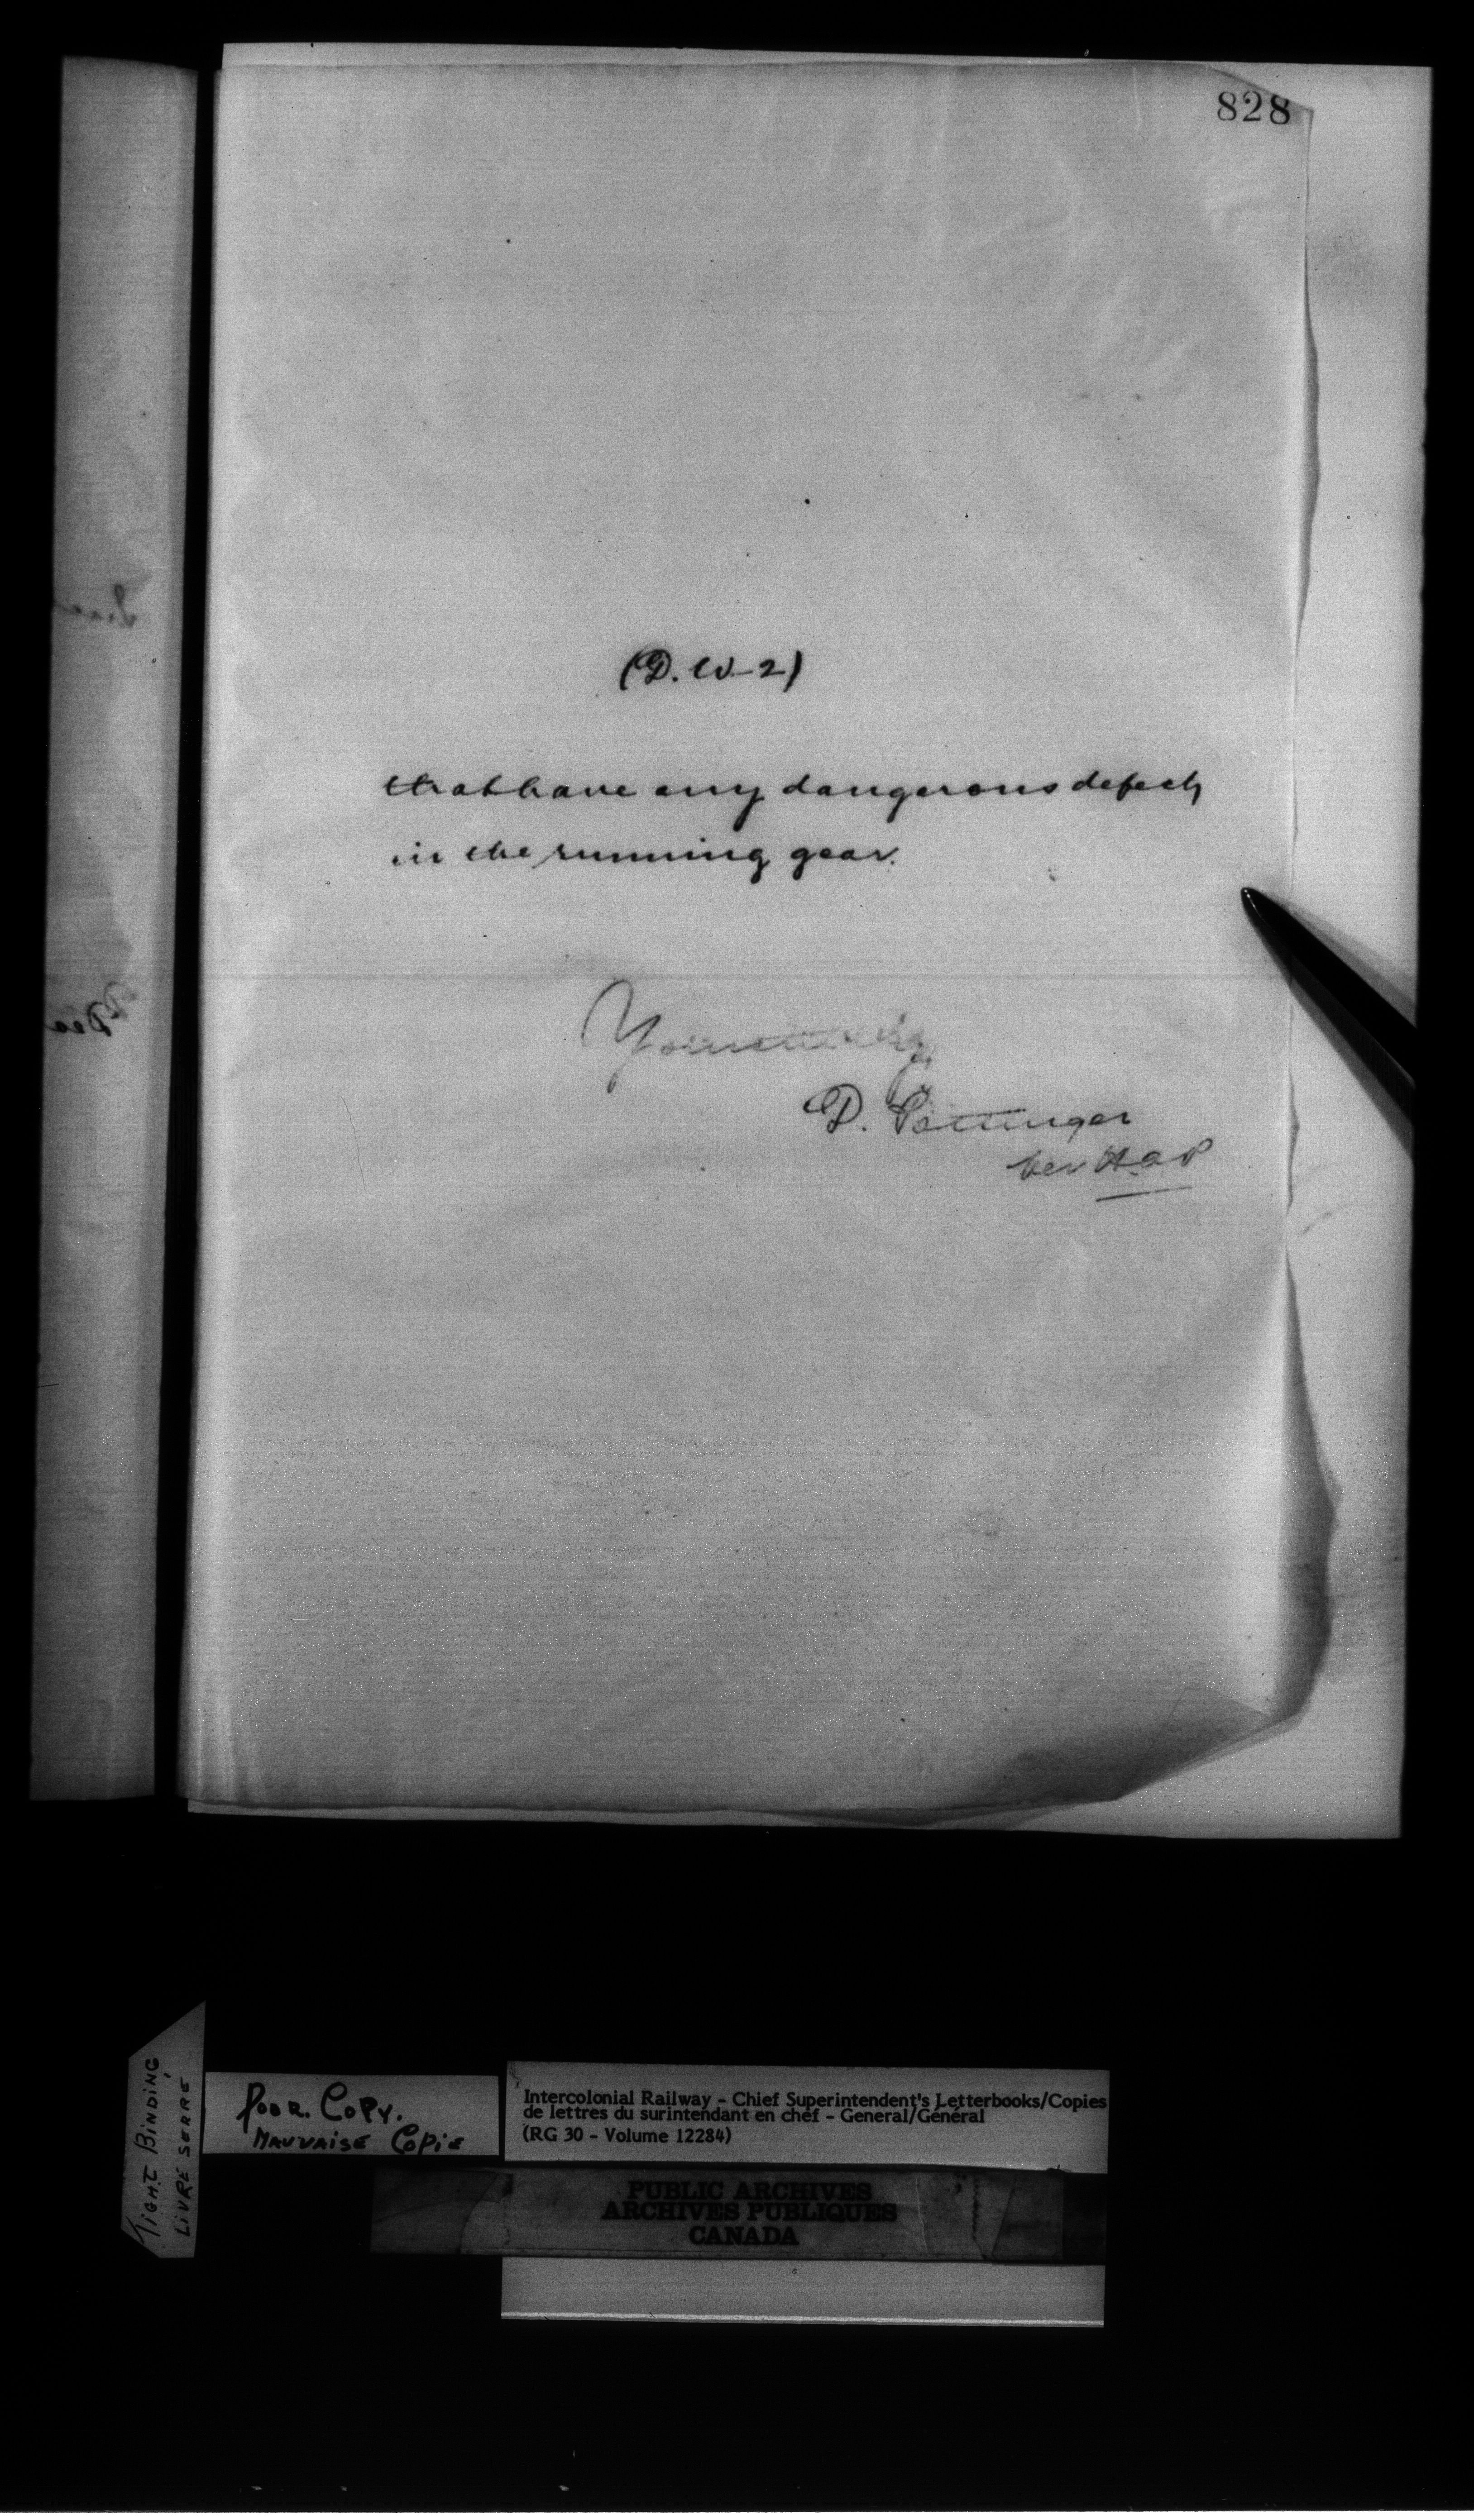 828
(D. W-2)
that have any dangerous defects
in the running gear.
Yours truly
D. Pottinger
per
TIGHT BINDING
LIVRE SERRÉ
POOR COPY.
MAUVAISE COPIE
Intercolonial Railway - Chief Superintendent's Letterbooks/Copies
de lettres du surintendant en chef - General/Général
(RG 30 - Volume 12284)
PUBLIC ARCHIVES
ARCHIVES PUBLIQUES
CANADA